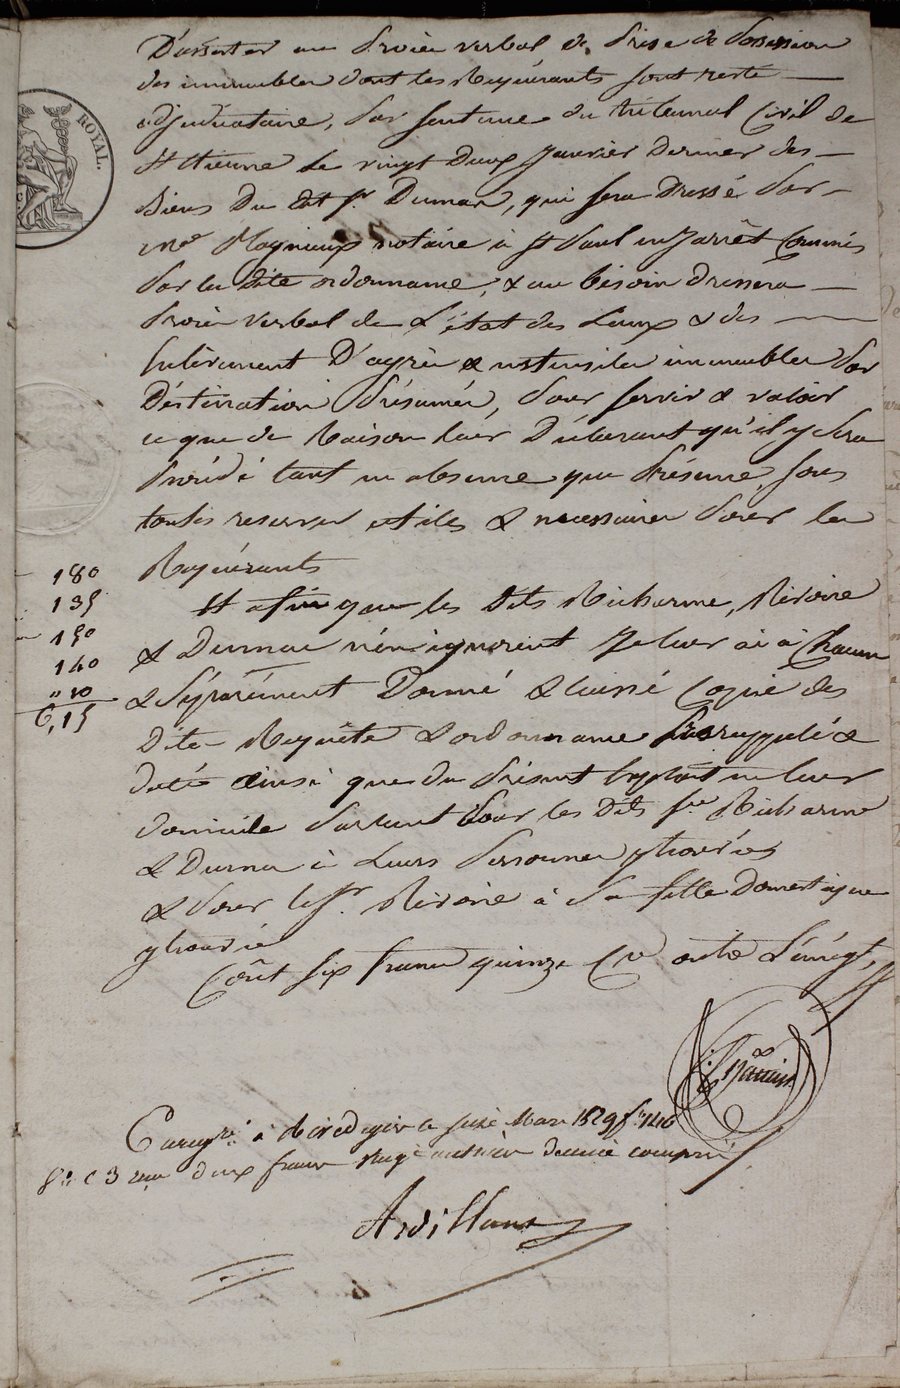 ROYAL.
D'assister au Procès verbal de Prise de Possession
des immeubles dont les Requérants sont resté
adjudicataire, Par sentence du tribunal Civil de
St Etienne le vingt Deux Janvier Dernier des
Biens Du dit Sr. Dumas, qui sera Dressé Par
Me Magnieux notaire à St Paul en Jarrêt Commis
Par la dite ordonnance, & au besoin Dressera
Procès verbal de L'état des Lieux & des
D'agrès & ustensiles immeubles Par
Déstination Présumés, Pour servir & valoir
ce que de Raison leur Déclarant qu'il y Sera
Procédé tant en absence que Présence, sous
toutes reserves utiles & necessaires Pour les
Requérants
180
135
150
140
" 10
6,15
Et afin que les Dits Richarme, Rivoire
& Dumas n'en ignorent Je leur ai à Chacun
& Séparément Donné & laissé Copie des
Dites Requête & ordonnance &
datée ainsi que du Présent Exploit en leur
domicile Parlant Pour les Dits Srs Richarme
& Dumas à Leurs Personnes ytrouvées
& Pour le Sr. Rivoire à Sa fille Domestique
ytrouvée
Coût six francs quinze Ces outre L'enregt,
Enregré à Rivedegier le seize Mars 1829 fo 146
c 3 reçu deux francs vingt centimes decime compris
Ardillons